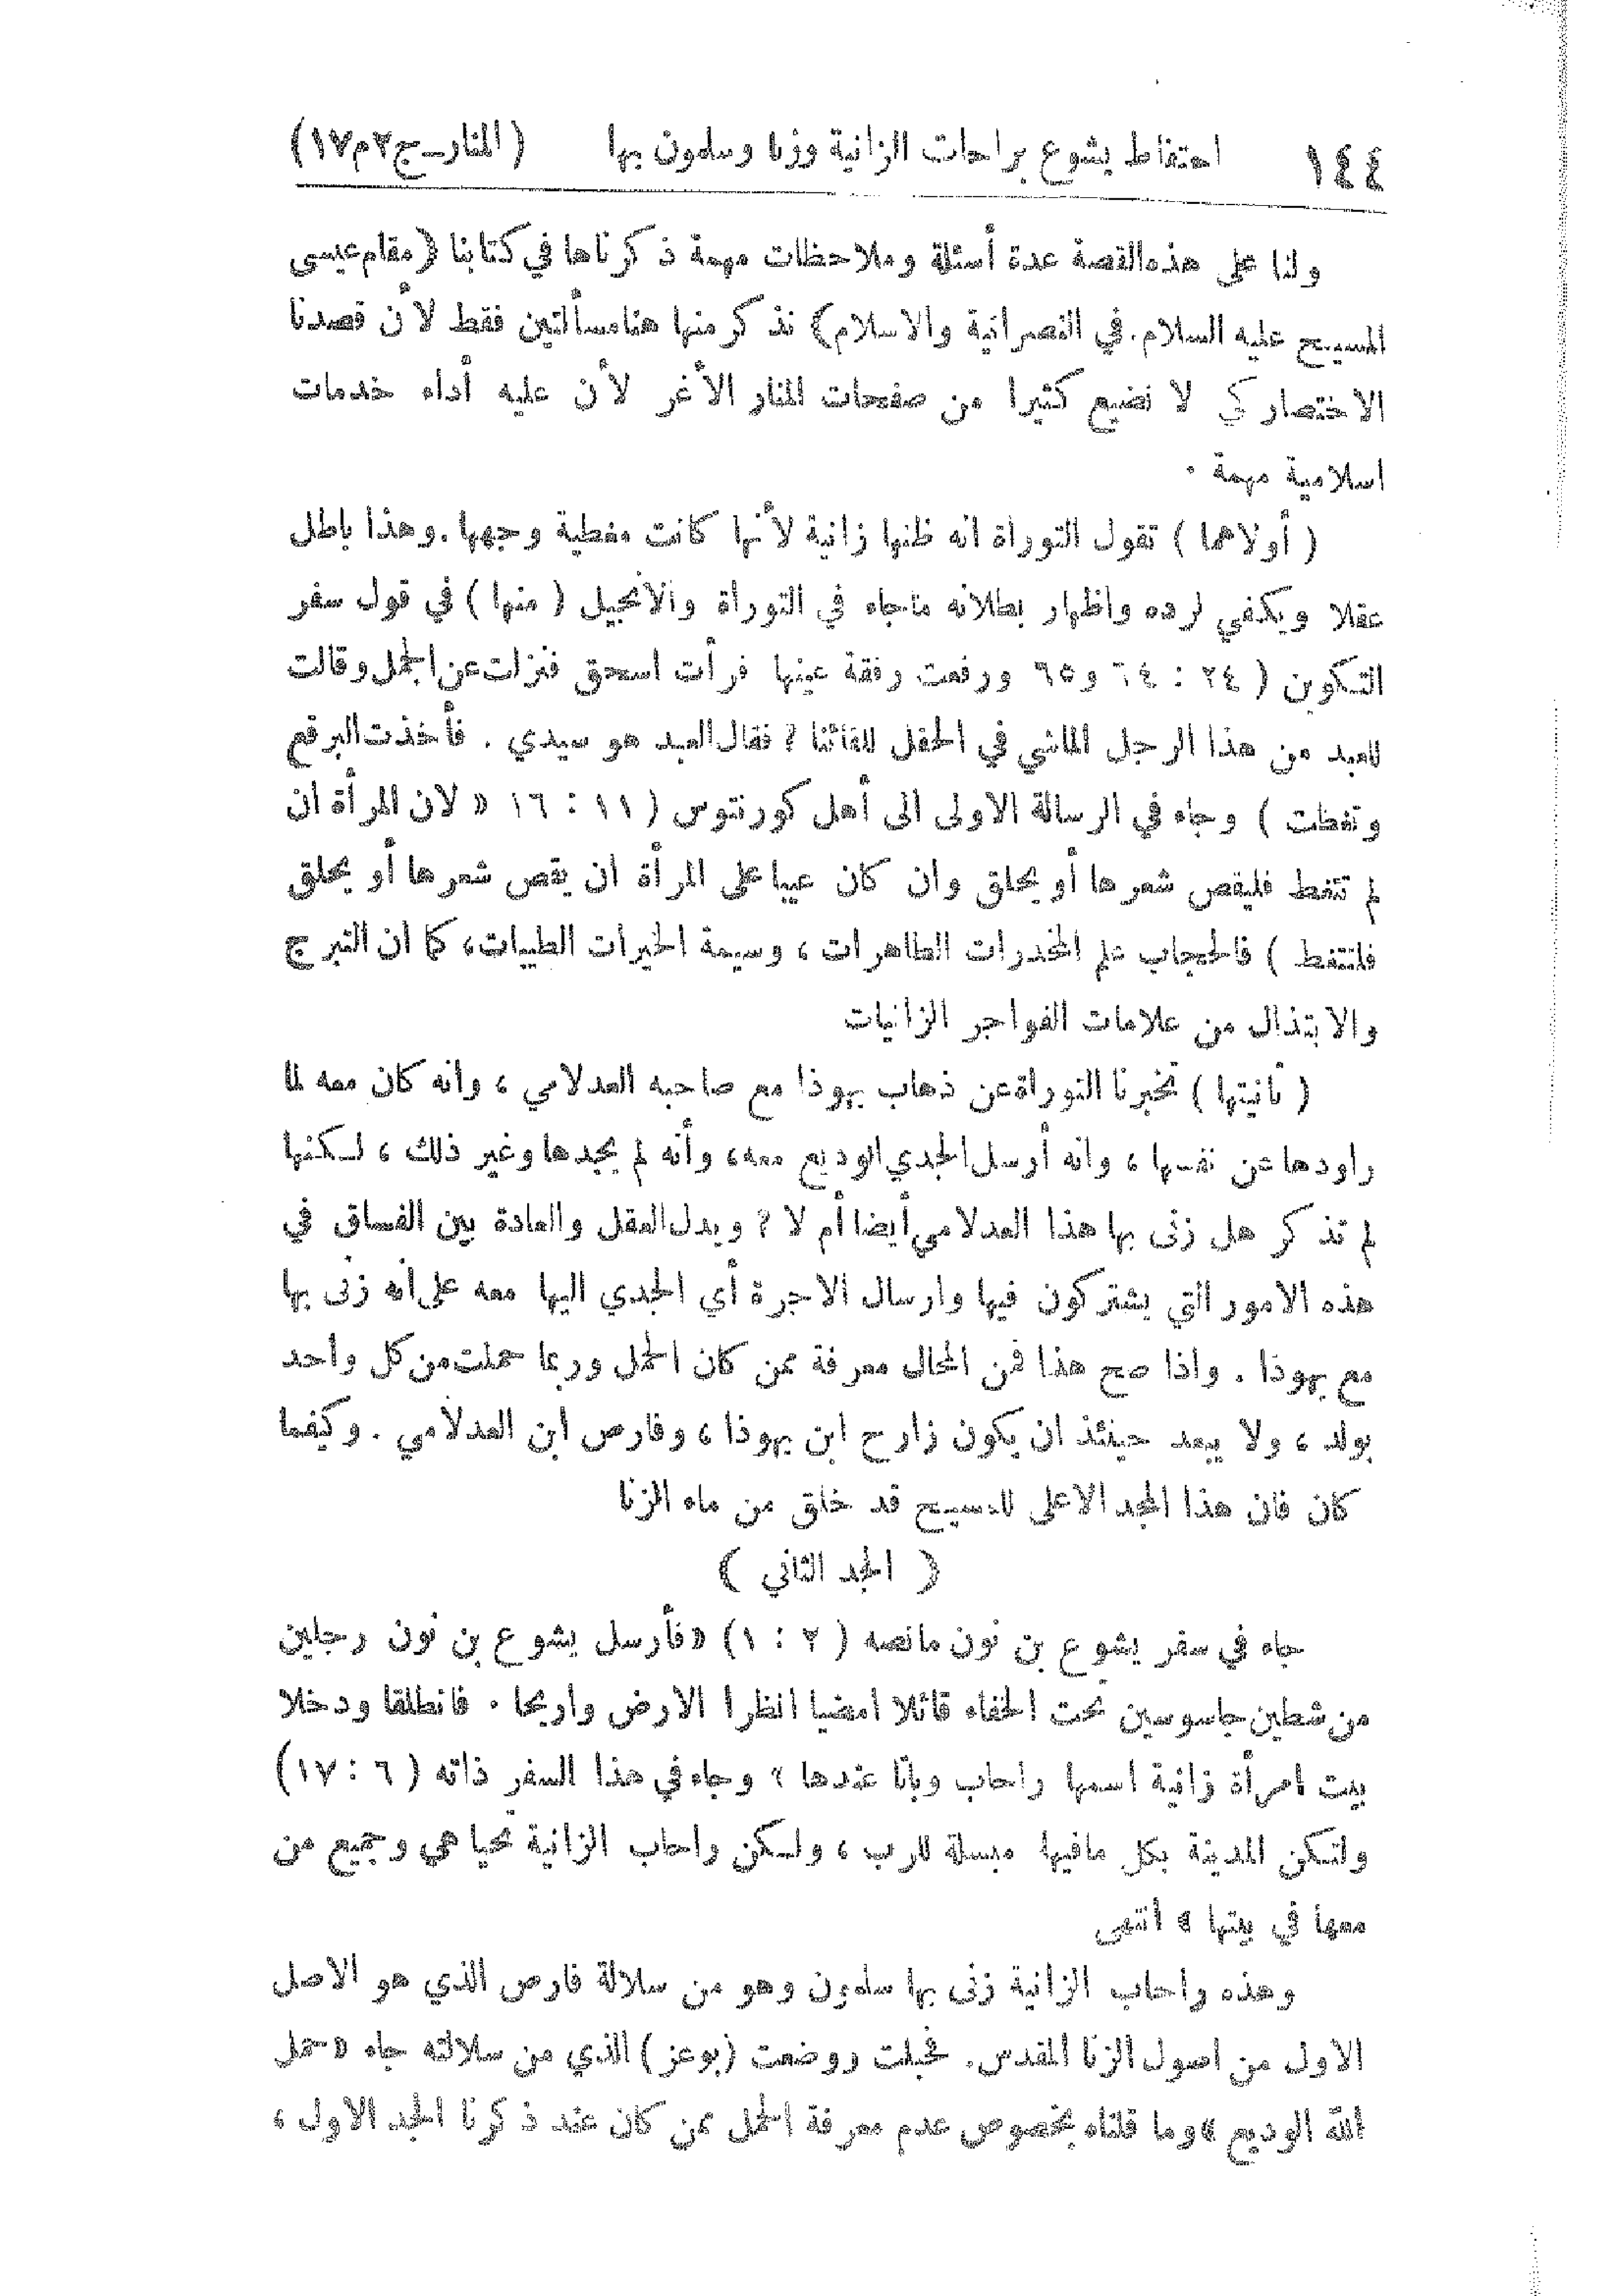 ١٤٤ احتفاط يشوع براحات الزانية وزنا وسلمون بها (المنار_ج٢م١٧)
ولنا على هذه القصة عدة أسئلة وملاحظات مهمة ذكرناها في كتابنا (مقام عيسى
المسيح عليه السلام. في النصرانية والاسلام) نذكر منها هنا مسألتين فقط لأن قصدنا
الاختصار كي لا نضيع كثيرا من صفحات المنار الأغر لأن عليه أداء خدمات
اسلامية مهمة ٠
( أولاهما ) تقول التوراة انه ظنها زانية لأنها كانت مغطية وجهها. وهذا باطل
عقلا ويكفي لرده واظهار بطلانه ماجاء في التوراة والانجيل ( منها ) في قول سفر
التكوين ( ٢٤ : ٦٤ و٦٥ ورفعت رفقة عينها فرأت اسحق فنزلت عن الجمل وقالت
للعبد من هذا الرجل الماشي في الحقل للقائنا ? فقال العبد هو سيدي . فأخذت البرقع
وتغطت ) وجاء في الرسالة الاولى الى أهل كورنتوس ( ١١ : ١٦ « لان المرأة ان
لم تتغط فليقص شعرها أو يحلق وان كان عيبا على المرأة ان يقص شعرها أو يحلق
فلتتغط ) فالحجاب علم المخدرات الطاهرات ، وسيمة الخيرات الطيبات، كما ان التبرج
والابتذال من علامات الفواجر الزانيات
( ثانيتها ) تخبرنا التوراة عن ذهاب يهوذا مع صاحبه العدلامي ، وأنه كان معه لما
راودها عن نفسها ، وانه أرسل الجدي الوديع معه، وأنه لم يجدها وغير ذلك ، لكنها
لم تذكر هل زنى بها هذا العدلامي أيضا أم لا ? ويدل العقل والعادة بين الفساق في
هذه الامور التي يشتركون فيها وارسال الاجرة أي الجدي اليها معه على أنه زنى بها
مع يهوذا . واذا صح هذا فمن المحال معرفة ممن كان الحمل وربما حملت من كل واحد
بولد ، ولا يبعد حينئذ ان يكون زارح ابن يهوذا ، وفارص ابن العدلامي . وكيفما
كان فان هذا الجد الاعلى للمسيح قد خلق من ماء الزنا
( الجد الثاني )
جاء في سفر يشوع بن نون مانصه ( ٢ : ١ ) «فأرسل يشوع بن نون رجلين
من شطين جاسوسين تحت الخفاء قائلا امضيا انظرا الارض واريحا ٠ فانطلقا ودخلا
بيت امرأة زانية اسمها راحاب وباتا عندها » وجاء في هذا السفر ذاته ( ٦ : ١٧ )
ولتكن المدينة بكل مافيها مبسلة للرب ، ولكن راحاب الزانية تحيا هي وجميع من
معها في بيتها » انتهى
وهذه راحاب الزانية زنى بها سلمون وهو من سلالة فارص الذي هو الاصل
الاول من اصول الزنا المقدس. فحبلت ووضعت (بوعز) الذي من سلالته جاء «حمل
الله الوديع » وما قلناه بخصوص عدم معرفة الحمل ممن كان عند ذكرنا الجد الاول ،